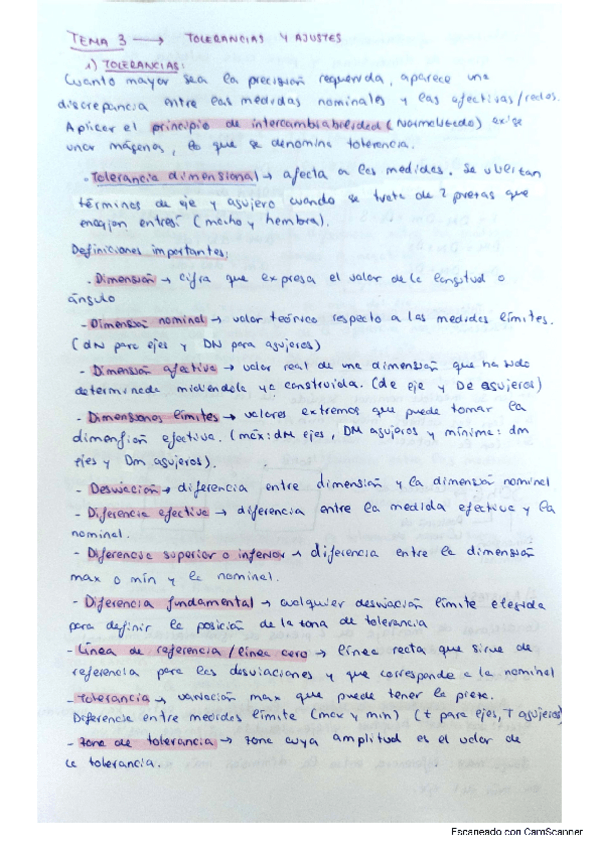 TEMA 3 → TOLERANCIAS Y AJUSTES
1) TOLERANCIAS:
Cuanto mayor sea la precisión requerida, aparece una
discrepancia entre las medidas nominales y las efectivas/reales.
Aplicar el principio de intercambiabilidad (Normalizado) exige
unos márgenes, lo que se denomina tolerancia.
- Tolerancia dimensional → afecta a las medidas. Se utilizan
términos de eje y agujero cuando se trate de 2 piezas que
encajan entresí (macho y hembra).
Definiciones importantes;
- Dimensión → cifra que expresa el valor de la longitud o
ángulo
- Dimensión nominal → valor teórico respecto a las medidas límites.
(dN para ejes y DN para agujeros)
- Dimensión efectiva → valor real de una dimensión que ha sido
determinada midiéndola ya construida. (de eje y De agujeros)
- Dimensiones límites → valores extremos que puede tomar la
dimensión efectiva. (máx: dM ejes, DM agujeros y mínima: dm
ejes y Dm agujeros).
- Desviación → diferencia entre dimensión y la dimensión nominal
- Diferencia efectiva → diferencia entre la medida efectiva y la
nominal.
- Diferencia superior o inferior → diferencia entre la dimensión
max o mín y la nominal.
- Diferencia fundamental → cualquier desviación límite elegida
para definir la posición de la zona de tolerancia
- Línea de referencia / línea cero → línea recta que sirve de
referencia para las desviaciones y que corresponde a la nominal
- Tolerancia → variación max que puede tener la pieza.
Diferencia entre medidas límite (max y min) (t para ejes, T agujeros)
- Zona de tolerancia → zona cuya amplitud es el valor de
la tolerancia.
Escaneado con CamScanner